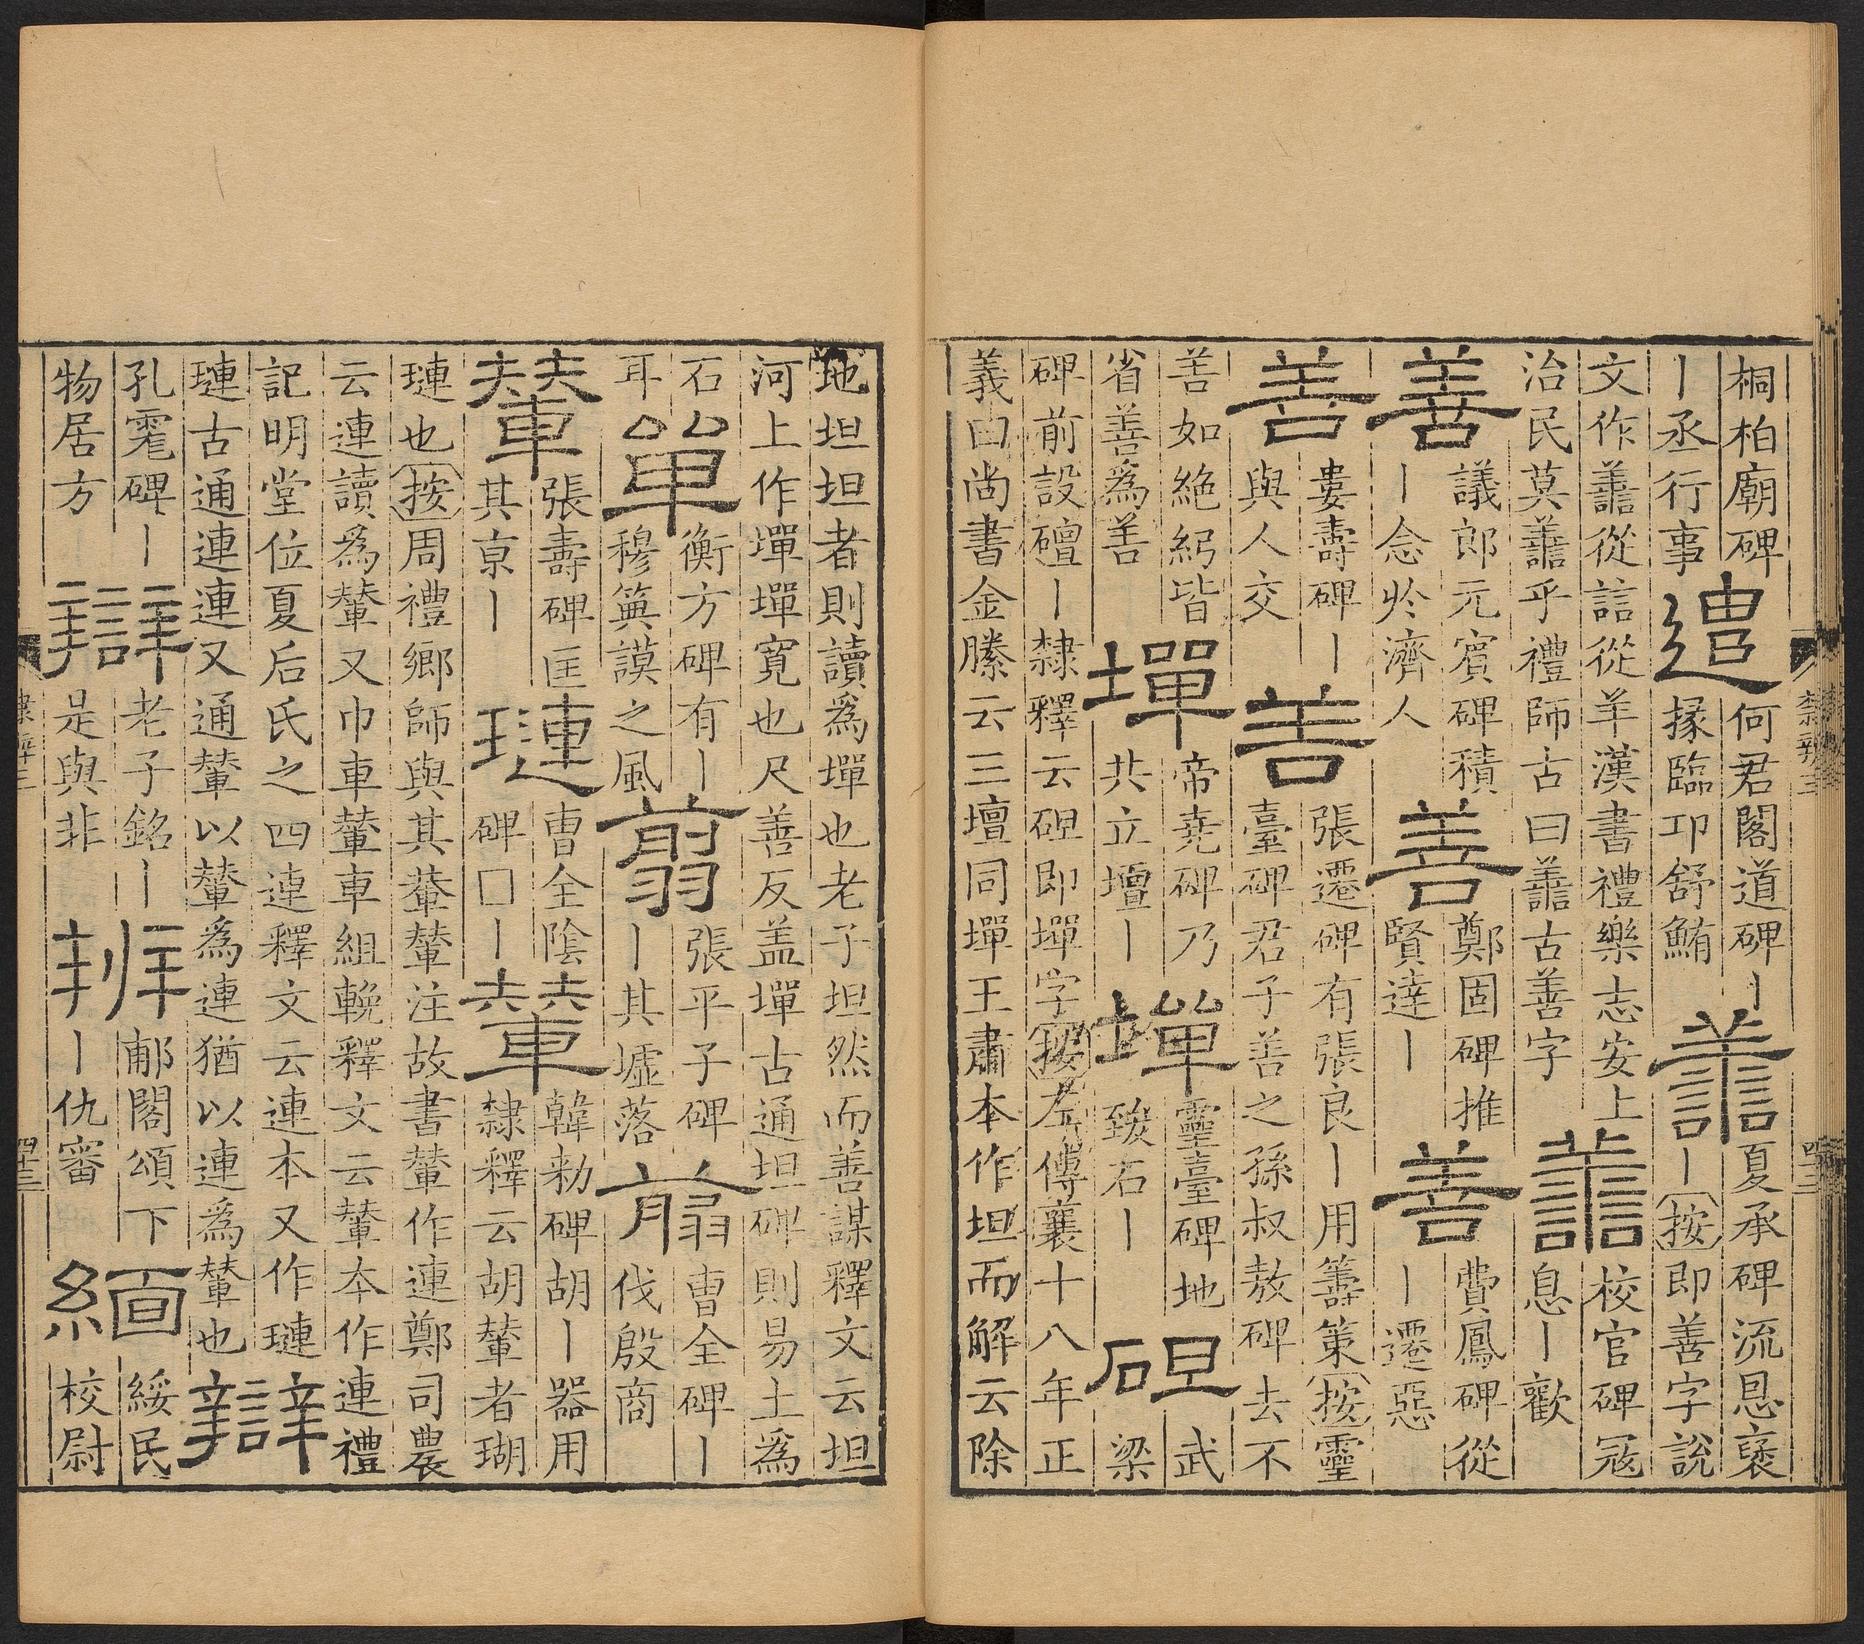 桐柏廟碑
丨丞行事
遣
何君閣道碑丨
掾臨卭舒鮪
譱
夏承碑流恩褒
丨按即善字說
文作譱從誩從羊漢書禮樂志安上
治民莫譱乎禮師古曰譱古善字
譱
校官碑冦
息丨歡
善
議郎元賔碑積
丨念扵濟人
善
鄭固碑推
賢達丨
善
費鳳碑從
丨遷惡
善
婁壽碑丨
與人交
善
張遷碑有張良丨用籌策按靈
臺碑君子善之孫叔敖碑去不
善如絶紖皆
省善爲善
墠
帝堯碑乃
共立壇丨
墠
靈臺碑地
致石丨
䃫
武
梁
碑前設䃪丨隸釋云䃫即墠字按左傳襄十八年正
義曰尚書金縢云三壇同墠王肅本作坦而解云除
隸辨三
四三
地坦坦者則讀爲墠也老子坦然而善謀釋文云坦
河上作墠墠寛也尺善反盖墠古通坦碑則易土爲
石
耳
單
衡方碑有丨
穆䈰謨之風
翦
張平子碑
丨其墟落
翦
曹全碑丨
伐殷商
輦
張壽碑匡
其京丨
璉
曹全隂
碑□丨
輦
韓勑碑胡丨器用
隸釋云胡輦者瑚
璉也按周禮鄉師與其輂輦注故書輦作連鄭司農
云連讀爲輦又巾車輦車組輓釋文云輦本作連禮
記明堂位夏后氏之四連釋文云連本又作璉
璉古通連連又通輦以輦爲連猶以連爲輦也
辯
孔碑丨
物居方
辯
老子銘丨
是與非
辨
郙閣頌下
丨仇審
緬
綏民
校尉
隸辨三
四三